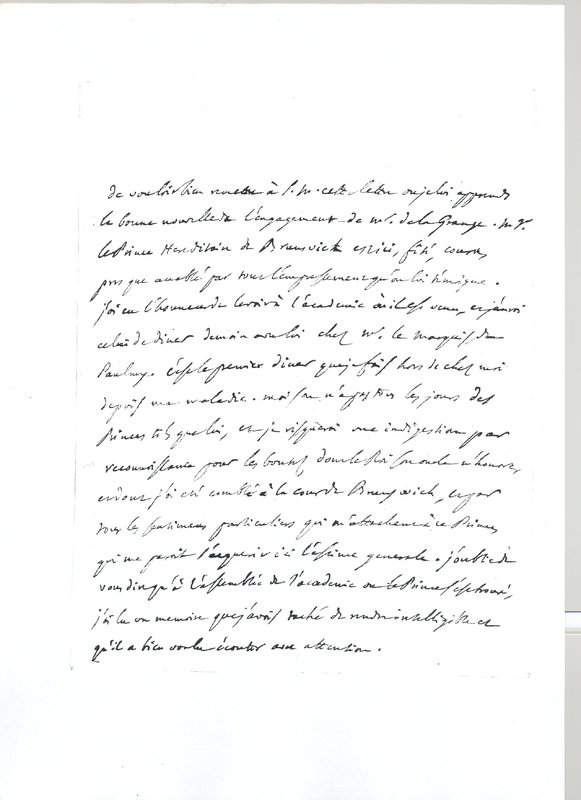 de vouloir bien remettre à S. M. cette lettre où je lui apprends
la bonne nouvelle de l'engagement de mr. de la Grange. Mgr.
le Prince Hereditaire de Brunswick est ici, fêté, couru,
presque accablé par tout l'empressement qu'on lui témoigne.
j'ai eu l'honneur de le voir à l'académie où il est venu, et j'aurai
celui de diner demain avec lui chez mr. le marquis de
Paulmy. c'est le premier diner que je fais hors de chez moi
depuis ma maladie. mais on n'a pas tous les jours des
Princes tels que lui, et je risquerai une indigestion par
reconnoissance pour les bontés dont le Roi son oncle m'honore,
et dont j'ai été comblé à la cour de Brunswick, et par
tous les sentimens particuliers qui m'attachent à ce Prince
qui me paroit s'acquerir ici l'estime generale. j'oublie de
vous dire qu'à l'assemblée de l'académie où le Prince s'est trouvé,
j'ai lu un memoire que j'avois taché de rendre intelligible et
qu'il a bien voulu écouter avec attention.